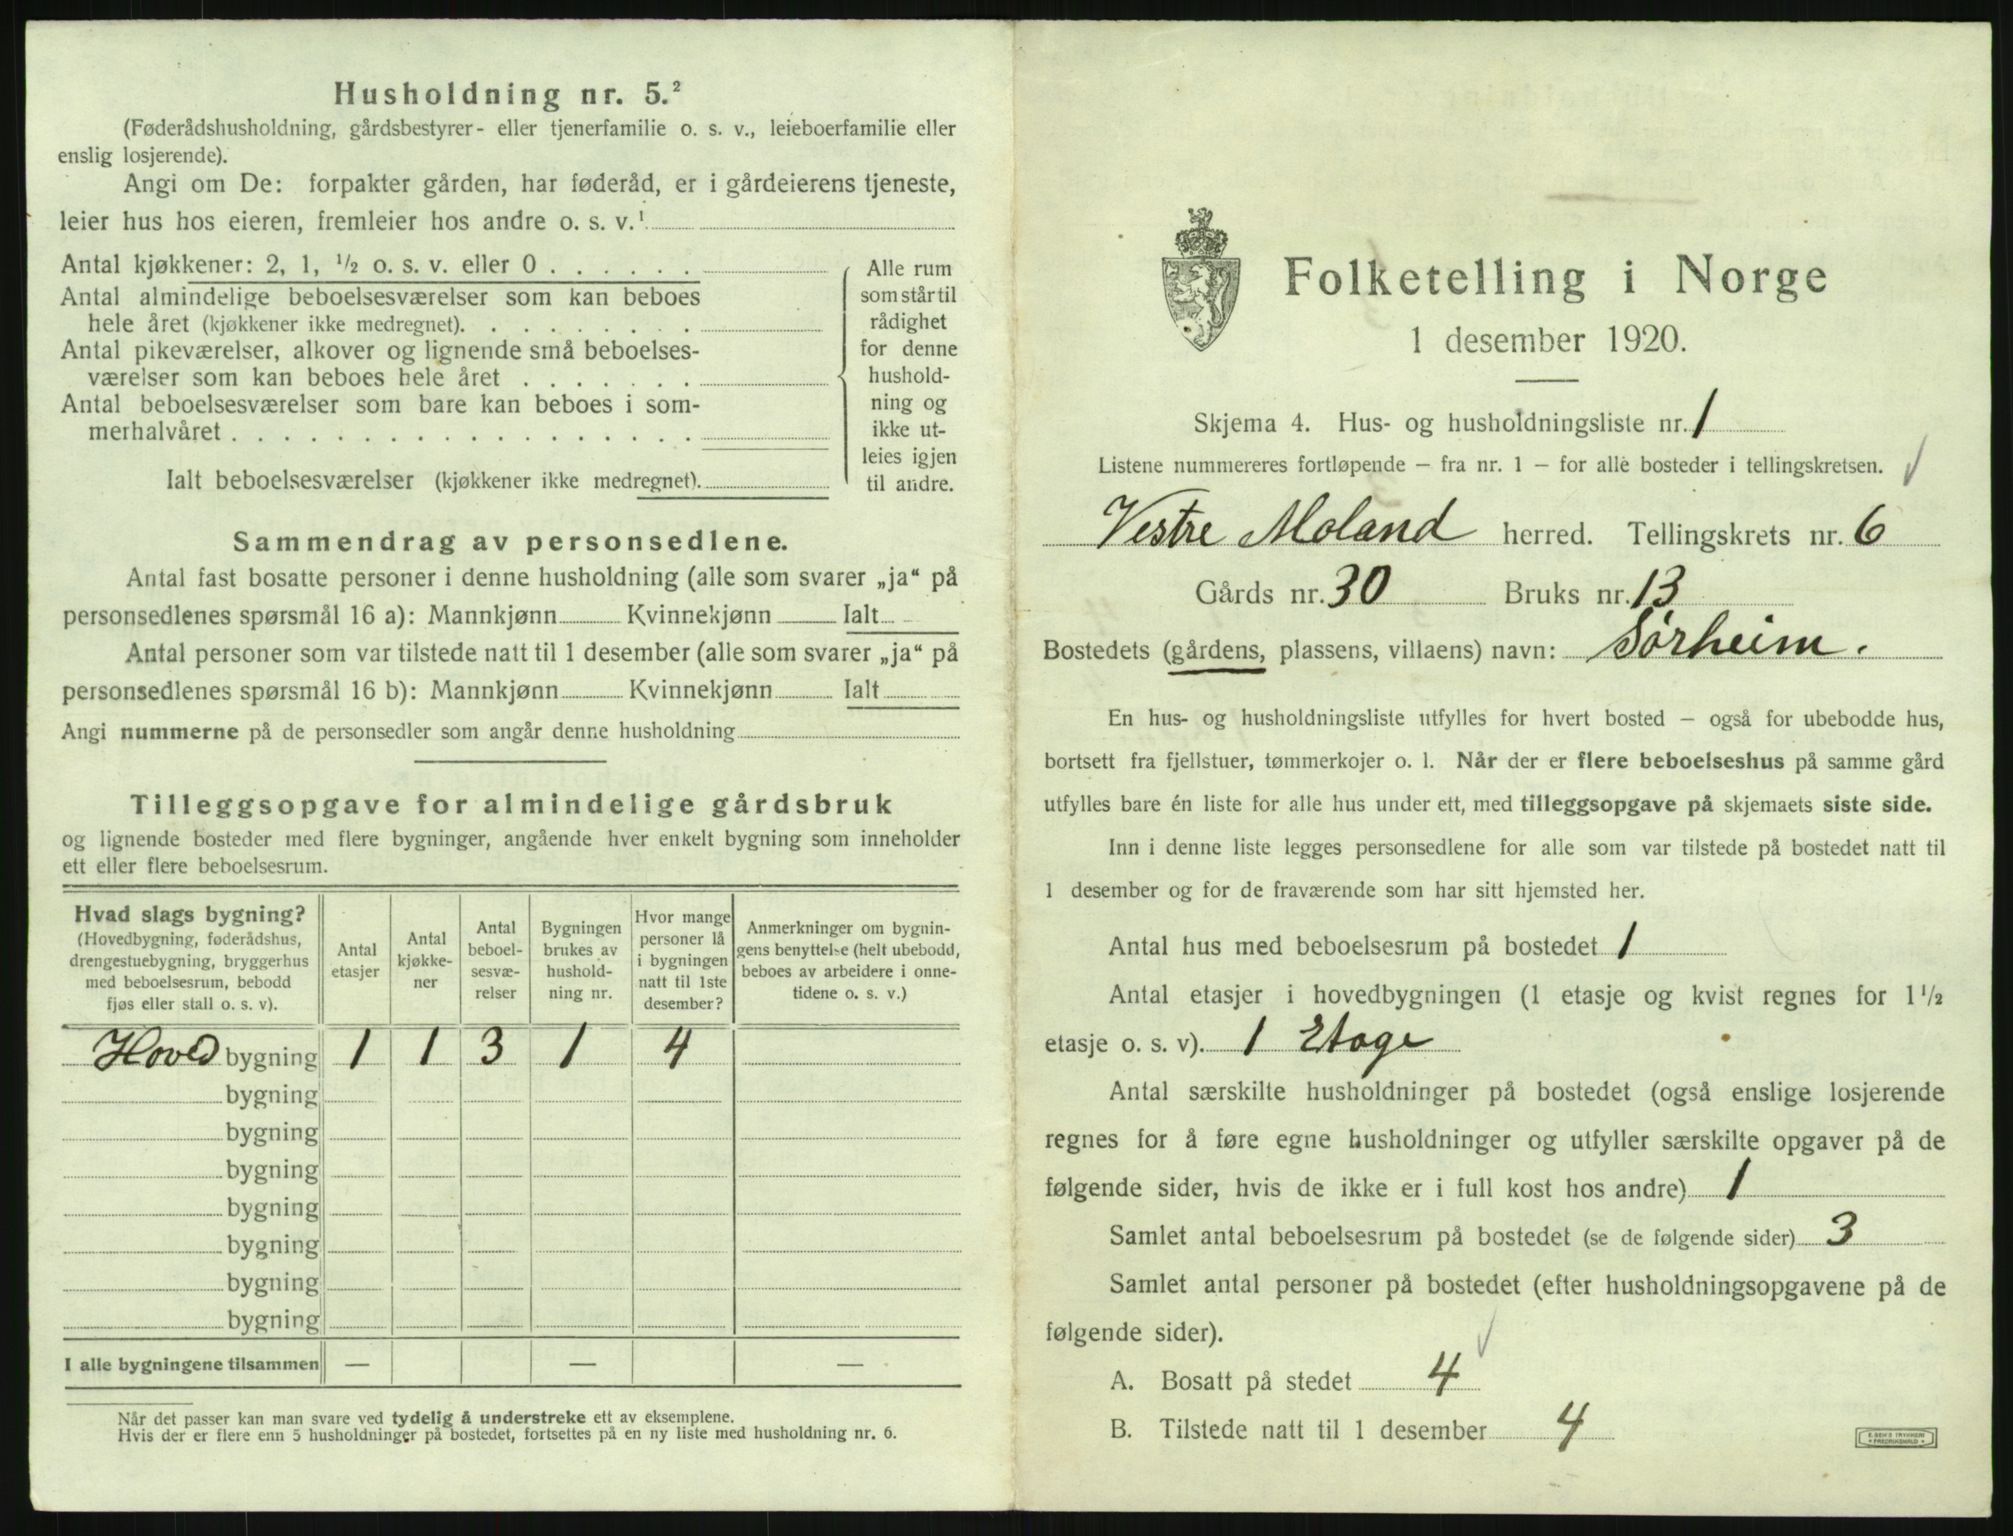 Husholdning nr. 5.²
(Føderådshusholdning, gårdsbestyrer- eller tjenerfamilie o. s. v., leieboerfamilie eller
enslig losjerende).
Angi om De: forpakter gården, har føderåd, er i gårdeierens tjeneste,
leier hus hos eieren, fremleier hos andre o. s. v.¹
Antal kjøkkener: 2, 1, ½ o. s. v. eller 0 . . . . . .
Antal almindelige beboelsesværelser som kan beboes
hele året (kjøkkener ikke medregnet). . . . . . . . .
Antal pikeværelser, alkover og lignende små beboelses-
værelser som kan beboes hele året . . . . . . .
Antal beboelsesværelser som bare kan beboes i som-
merhalvåret . . . . . . . . . . . . . . . . . .
Ialt beboelsesværelser (kjøkkener ikke medregnet).
Alle rum
som står til
rådighet
for denne
hushold-
ning og
ikke ut-
leies igjen
til andre.
Sammendrag av personsedlene.
Antal fast bosatte personer i denne husholdning (alle som svarer „ja“ på
personsedlenes spørsmål 16 a): Mannkjønn Kvinnekjønn Ialt
Antal personer som var tilstede natt til 1 desember (alle som svarer „ja“ på
personsedlenes spørsmål 16 b): Mannkjønn Kvinnekjønn Ialt
Angi nummerne på de personsedler som angår denne husholdning
Tilleggsopgave for almindelige gårdsbruk
og lignende bosteder med flere bygninger, angående hver enkelt bygning som inneholder
ett eller flere beboelsesrum.
Hvad slags bygning?
(Hovedbygning, føderådshus,
drengestuebygning, bryggerhus
med beboelsesrum, bebodd
fjøs eller stall o. s. v).
Antal
etasjer
Antal
kjøkke-
ner
Antal
beboel-
sesvæ-
relser
Bygningen
brukes av
hushold-
ning nr.
Hvor mange
personer lå
i bygningen
natt til 1ste
desember?
Anmerkninger om bygnin-
gens benyttelse (helt ubebodd,
beboes av arbeidere i onne-
tidene o. s. v.)
Hoved bygning 1 1 3 1 4
bygning
bygning
bygning
bygning
bygning
bygning
bygning
I alle bygningene tilsammen — — —
Når det passer kan man svare ved tydelig å understreke ett av eksemplene.
Hvis der er flere enn 5 husholdninger på bostedet, fortsettes på en ny liste med husholdning nr. 6.
Folketelling i Norge
1 desember 1920.
Skjema 4. Hus- og husholdningsliste nr. 1
Listene nummereres fortløpende — fra nr. 1 — for alle bosteder i tellingskretsen.
Vestre Moland herred. Tellingskrets nr. 6
Gårds nr. 30 Bruks nr. 13
Bostedets (gårdens, plassens, villaens) navn: Sørheim.
En hus- og husholdningsliste utfylles for hvert bosted — også for ubebodde hus,
bortsett fra fjellstuer, tømmerkojer o. l. Når der er flere beboelseshus på samme gård
utfylles bare én liste for alle hus under ett, med tilleggsopgave på skjemaets siste side.
Inn i denne liste legges personsedlene for alle som var tilstede på bostedet natt til
1 desember og for de fraværende som har sitt hjemsted her.
Antal hus med beboelsesrum på bostedet 1
Antal etasjer i hovedbygningen (1 etasje og kvist regnes for 1½
etasje o. s. v). 1 Etage
Antal særskilte husholdninger på bostedet (også enslige losjerende
regnes for å føre egne husholdninger og utfyller særskilte opgaver på de
følgende sider, hvis de ikke er i full kost hos andre) 1
Samlet antal beboelsesrum på bostedet (se de følgende sider) 3
Samlet antal personer på bostedet (efter husholdningsopgavene på de
følgende sider).
A. Bosatt på stedet 4
B. Tilstede natt til 1 desember 4